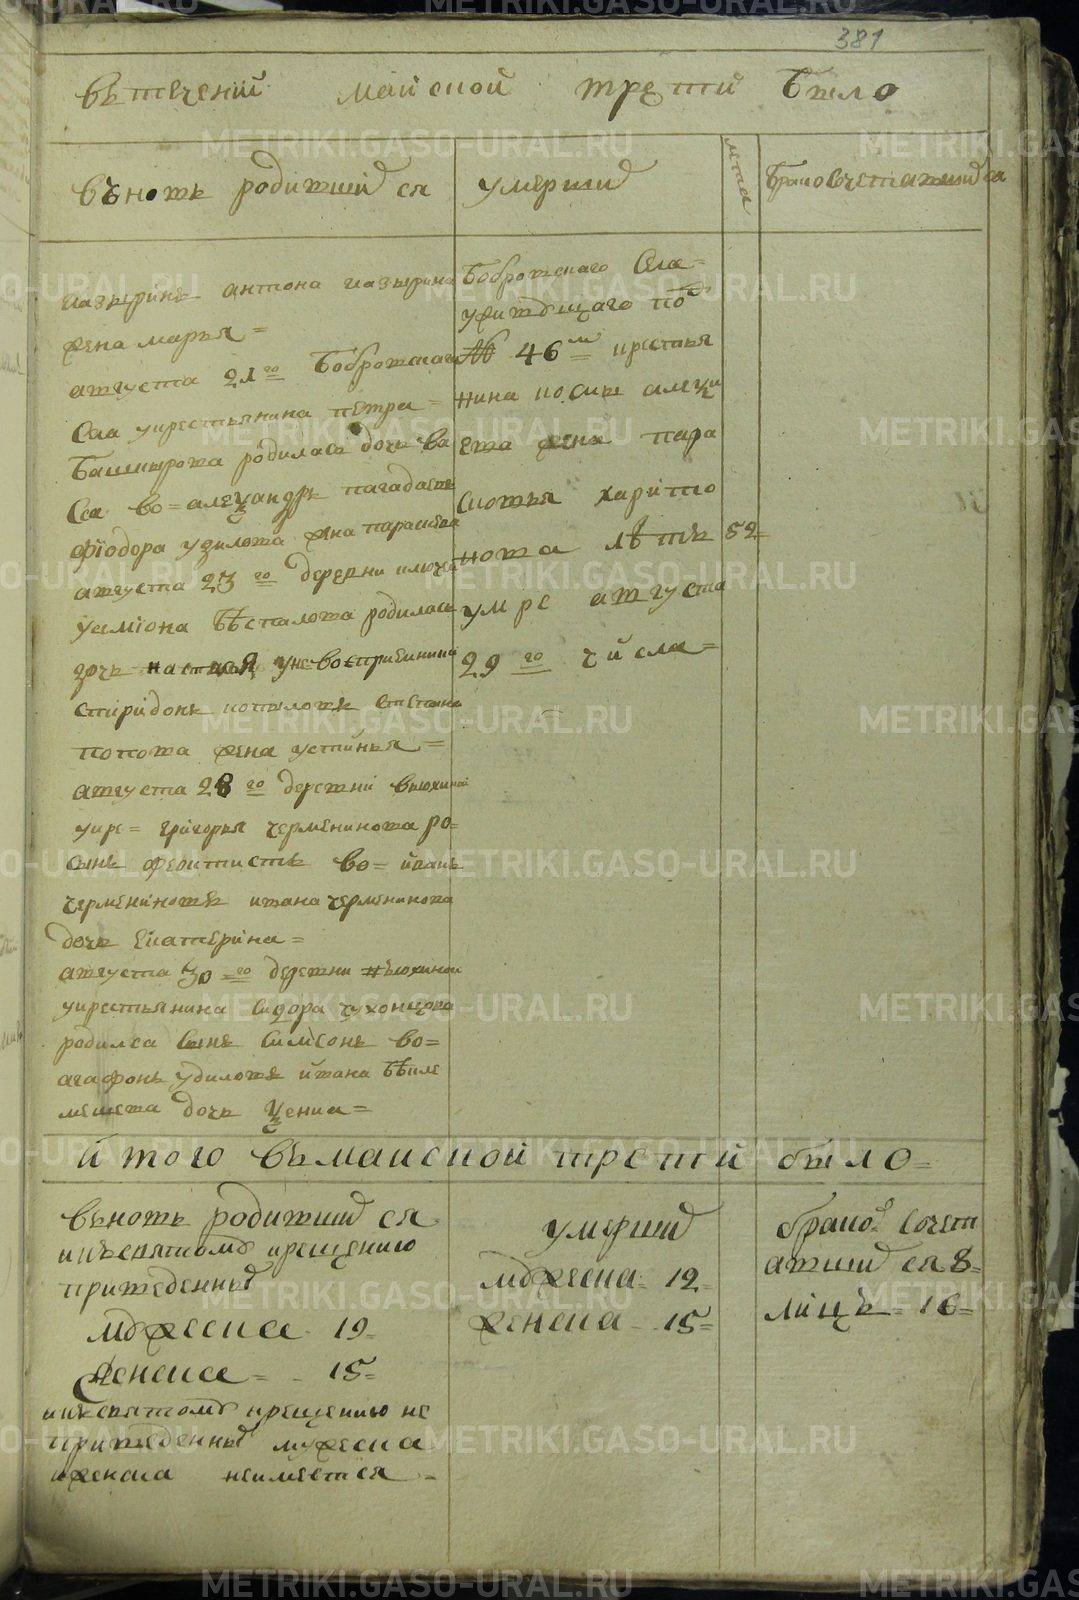 381
вътечениі маисkой трети было
вѣновь родившийся
умерший
лета
браковочетавшийся
казыринъ антона казырина
жена марья =
августа 21 го Бобровскаго
села укрестьянина петра =
Башкирова родилась дочь ва
сса во = александръ
фіодора жена парасковья
августа 23 го деревни ключи
усміона бѣспалова родилась
дочь настася унея восприемники
спиридонъ копыловъ степана
попова жена устинья =
августа 28 го деревни вьюхиной
укре = григорья черменинова ро =
сынъ феоктистъ во = иванъ
чермениновъ ивана черменинова
дочь екатерина =
августа 30 = го деревни вьюхиной
укрестьянина сидора чухонцова
родился сынъ симіонъ во =
агафонъ удиловъ ивана бѣиле
мешева дочь ѯениа =
Бобровскаго села =
живущаго под
№ 46 м крестья
нина иосифа алеѯи
ева жена пара
сковья харито
нова лѣтъ 52
умре августа
29 го числа =
итого въмаиской трети было =
вьновь родившийся
икъсвятому крещению
приведенный
мужеска 19 =
женска = 15 =
икъсвятому крещению не
приведенный мужеска
иженска неимеетса =
умерший
мужеска = 12 =
женска 15 =
брако сочет
авшийся 8 =
лицъ = 16 =
METRIKI.GASO-URAL.RU